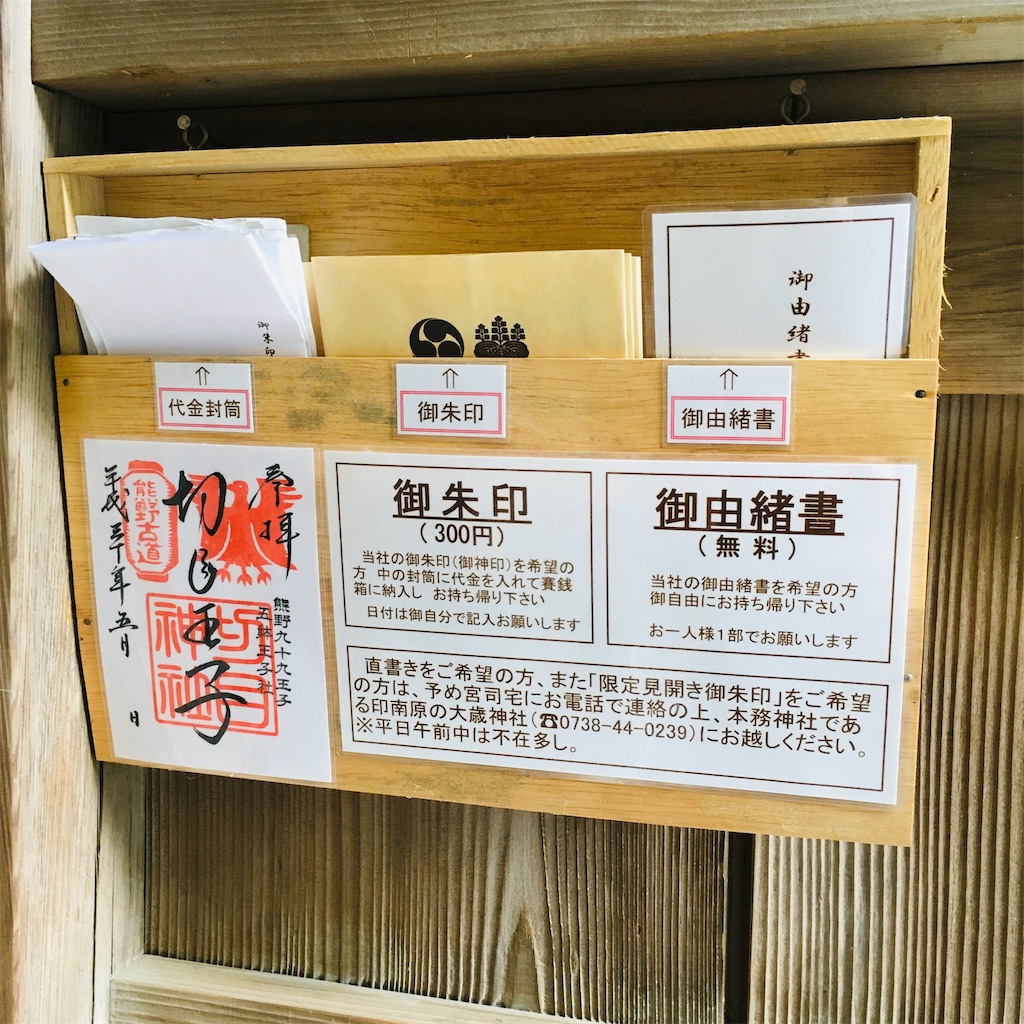 御朱印
御由緒書
代金封筒
御朱印
御由緒書
奉拝
切目王子
熊野古道
熊野九十九王子
五躰王子社
切目
神社
平成三十年五月 日
御朱印
(300円)
当社の御朱印(御神印)を希望の
方 中の封筒に代金を入れて賽銭
箱に納入し お持ち帰り下さい
日付は御自分で記入お願いします
御由緒書
(無料)
当社の御由緒書を希望の方
御自由にお持ち帰り下さい
お一人様1部でお願いします
直書きをご希望の方、また「限定見開き御朱印」をご希望
の方は、予め宮司宅にお電話で連絡の上、本務神社であ
る印南原の大歳神社(☎0738-44-0239)にお越しください。
※平日午前中は不在多し。